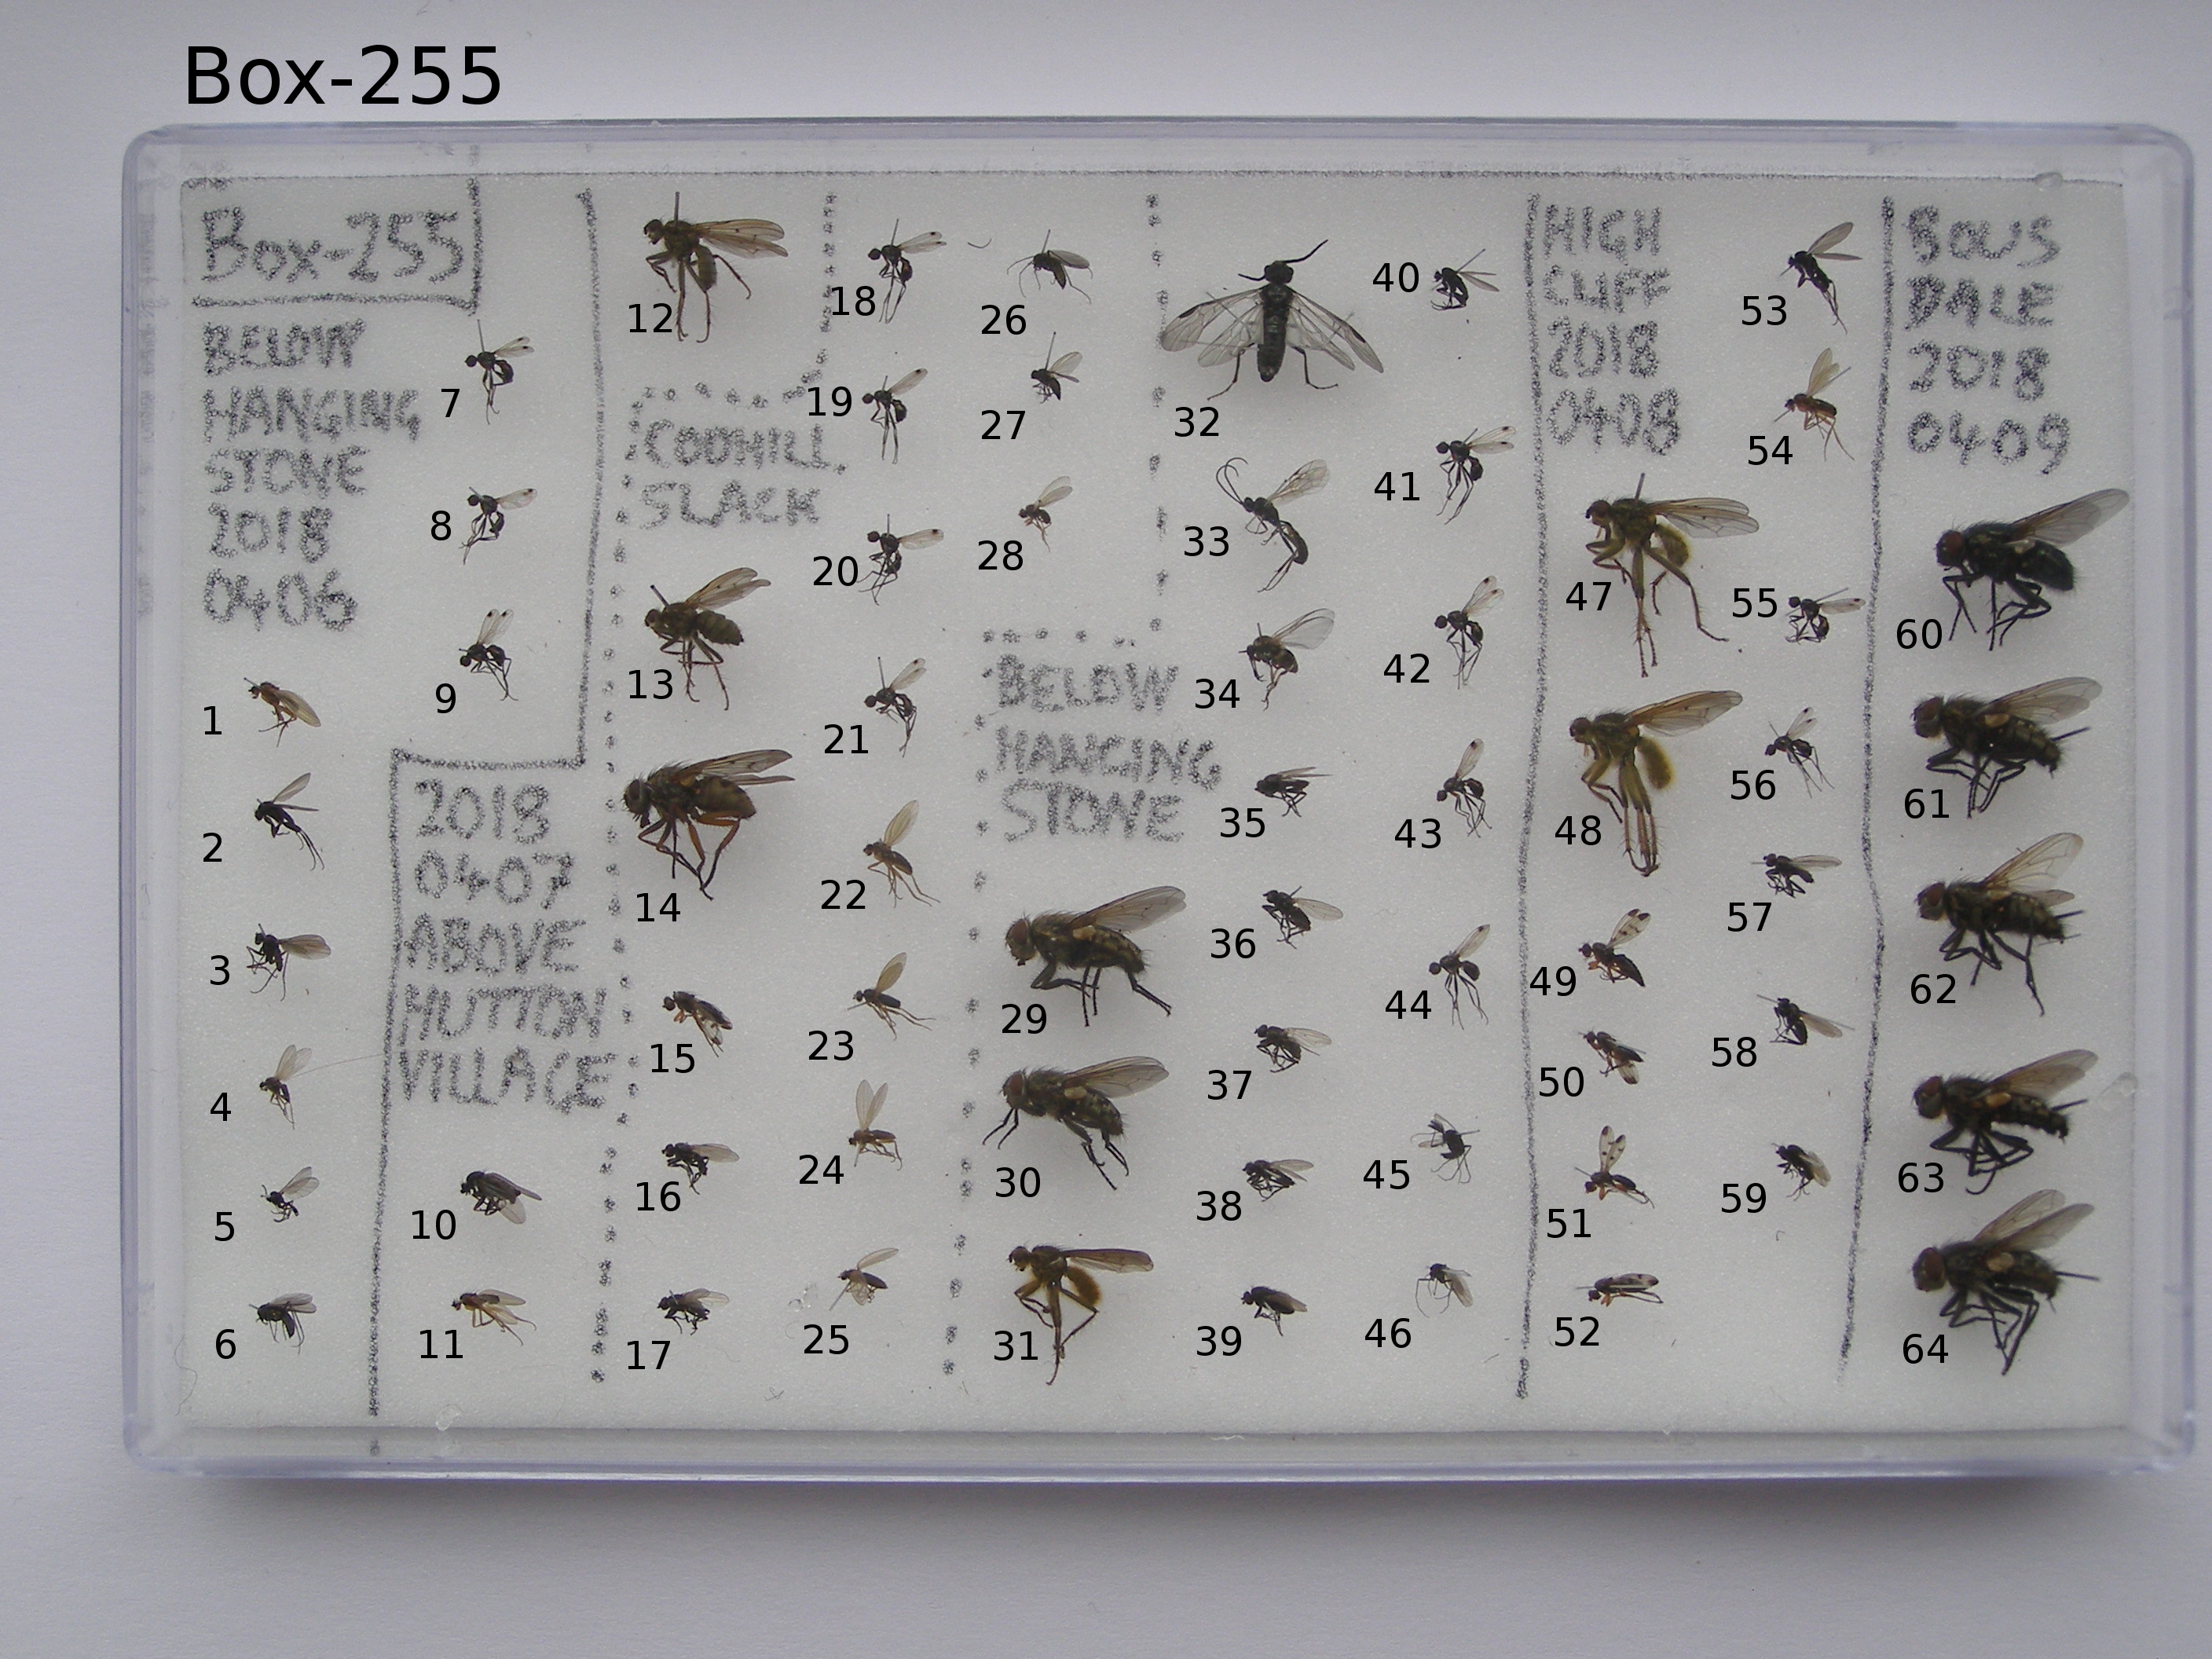 Box-255
Box-255
BELOW
HANGING
STONE
2018
0406
1
2
3
4
5
6
7
8
9
2018
0407
ABOVE
HUTTON
VILLAGE
10
11
12
CODHILL
SLACK
13
14
15
16
17
18
19
20
21
22
23
24
25
26
27
28
BELOW
HANGING
STONE
29
30
31
32
33
34
35
36
37
38
39
40
41
42
43
44
45
46
HIGH
CLIFF
2018
0408
47
48
49
50
51
52
53
54
55
56
57
58
59
BOUS
DALE
2018
0409
60
61
62
63
64